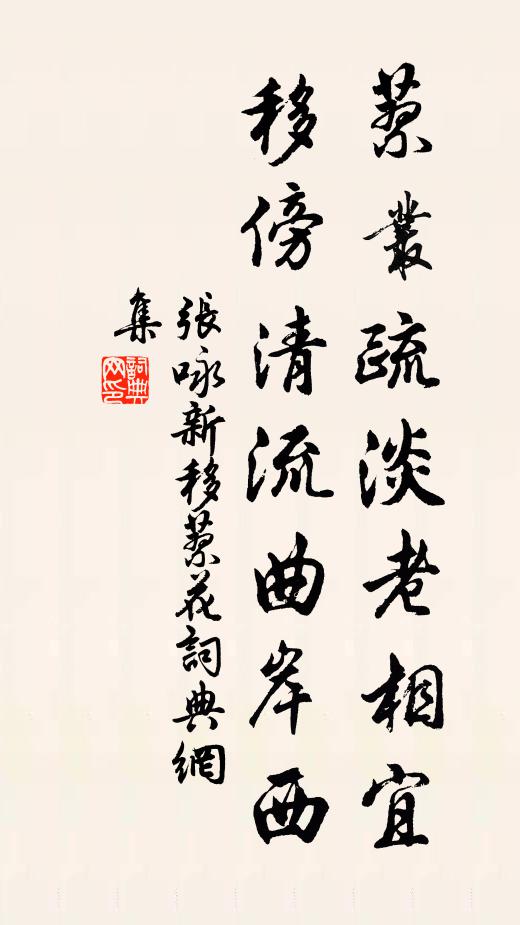 蓼叢疏淡老相宜
移傍清流曲岸西
張咏新移蓼花詞典網
集
詞典
网印